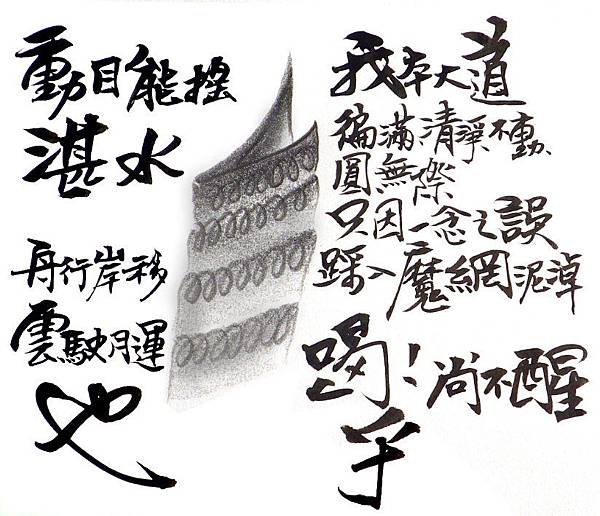 動目能搖
湛水
舟行岸移
雲駛月運
也
我本大道
徧滿清淨不動、
圓無際
只因一念之誤
踩入魔網泥淖
喝！尚不醒
乎